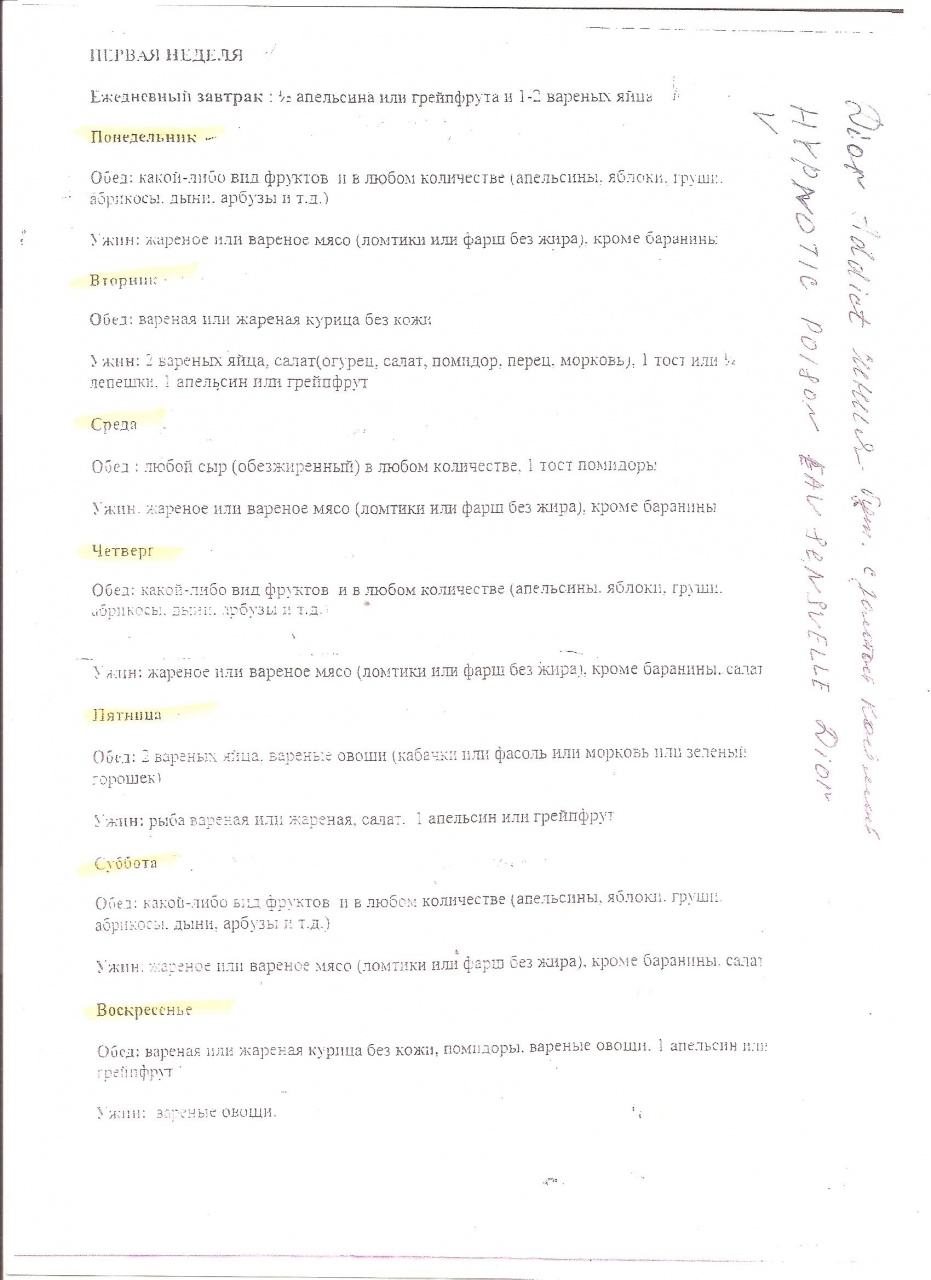 ПЕРВАЯ НЕДЕЛЯ
Ежедневный завтрак : ½ апельсина или грейпфрута и 1-2 вареных яйца
Понедельник
Обед: какой-либо вид фруктов и в любом количестве (апельсины, яблоки, груши,
абрикосы, дыни, арбузы и т.д.)
Ужин: жареное или вареное мясо (ломтики или фарш без жира), кроме баранины
Вторник
Обед: вареная или жареная курица без кожи
Ужин: 2 вареных яйца, салат(огурец, салат, помидор, перец, морковь), 1 тост или ½
лепешки, 1 апельсин или грейпфрут
Среда
Обед : любой сыр (обезжиренный) в любом количестве, 1 тост помидоры
Ужин: жареное или вареное мясо (ломтики или фарш без жира), кроме баранины
Четверг
Обед: какой-либо вид фруктов и в любом количестве (апельсины, яблоки, груши,
абрикосы, дыни, арбузы и т.д.)
Ужин: жареное или вареное мясо (ломтики или фарш без жира), кроме баранины, салат
Пятница
Обед: 2 вареных яйца, вареные овощи (кабачки или фасоль или морковь или зеленый
горошек)
Ужин: рыба вареная или жареная, салат. 1 апельсин или грейпфрут
Суббота
Обед: какой-либо вид фруктов и в любом количестве (апельсины, яблоки, груши,
абрикосы, дыни, арбузы и т.д.)
Ужин: жареное или вареное мясо (ломтики или фарш без жира), кроме баранины, салат
Воскресенье
Обед: вареная или жареная курица без кожи, помидоры, вареные овощи, 1 апельсин или
грейпфрут
Ужин: вареные овощи.
Dior Addict с
HYPNOTIC POISON EAU SENSUELLE Dior